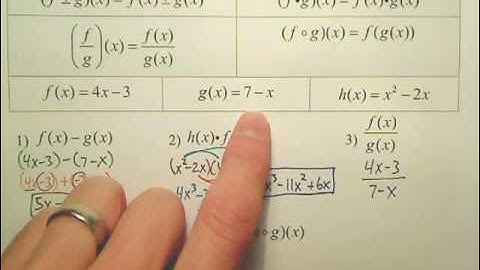 (f ± g)(x) = f(x) ± g(x)
(f • g)(x) = f(x) • g(x)
(f/g)(x) = f(x)/g(x)
(f ∘ g)(x) = f(g(x))
f(x) = 4x − 3
g(x) = 7 − x
h(x) = x² − 2x
1) f(x) − g(x)
(4x−3) − (7−x)
(4x−3) +
5x
2) h(x) • f
(x²−2x)(
4x³
x³ − 11x² + 6x
3) f(x)/g(x)
4x−3
7−x
∘ g)(x)